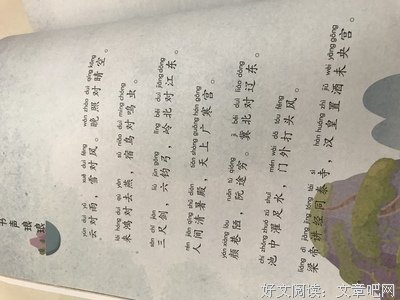 书声琅琅
yún duì yǔ xuě duì fēng wǎn zhào duì qíng kōng
云对雨，雪对风。晚照对晴空。
lái hóng duì qù yàn sù niǎo duì míng chóng
来鸿对去燕，宿鸟对鸣虫。
sān chǐ jiàn liù jūn gōng lǐng běi duì jiāng dōng
三尺剑，六钧弓，岭北对江东。
rén jiān qīng shǔ diàn tiān shàng guǎng hán gōng
人间清暑殿，天上广寒宫。
yán xiàng lòu ruǎn tú qióng jì běi duì liáo dōng
颜巷陋，阮途穷。冀北对辽东。
chí zhōng zhuó zú shuǐ mén wài dǎ tóu fēng
池中濯足水，门外打头风。
liáng dì jiǎng jīng tóng tài sì hàn huáng zhì jiǔ wèi yāng gōng
梁帝讲经同泰寺，汉皇置酒未央宫。
好文阅读：文章吧网